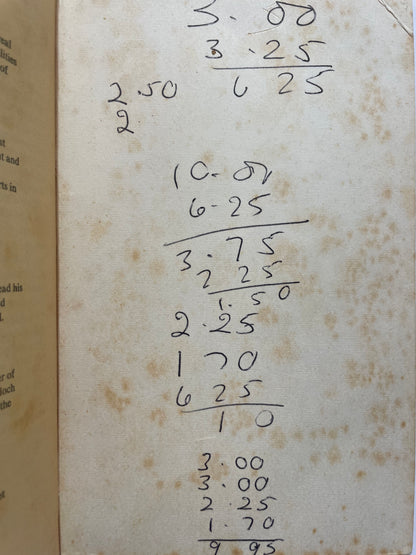 eal
lities
of
st
t and
ts in
ead his
d
l.
er of
loch
the
st
3. 00
3 .25
6 25
2.50
2
10.00
6-25
3.75
2 25
1.50
2.25
1 70
6 25
1 0
3.00
3.00
2.25
1.70
9 95